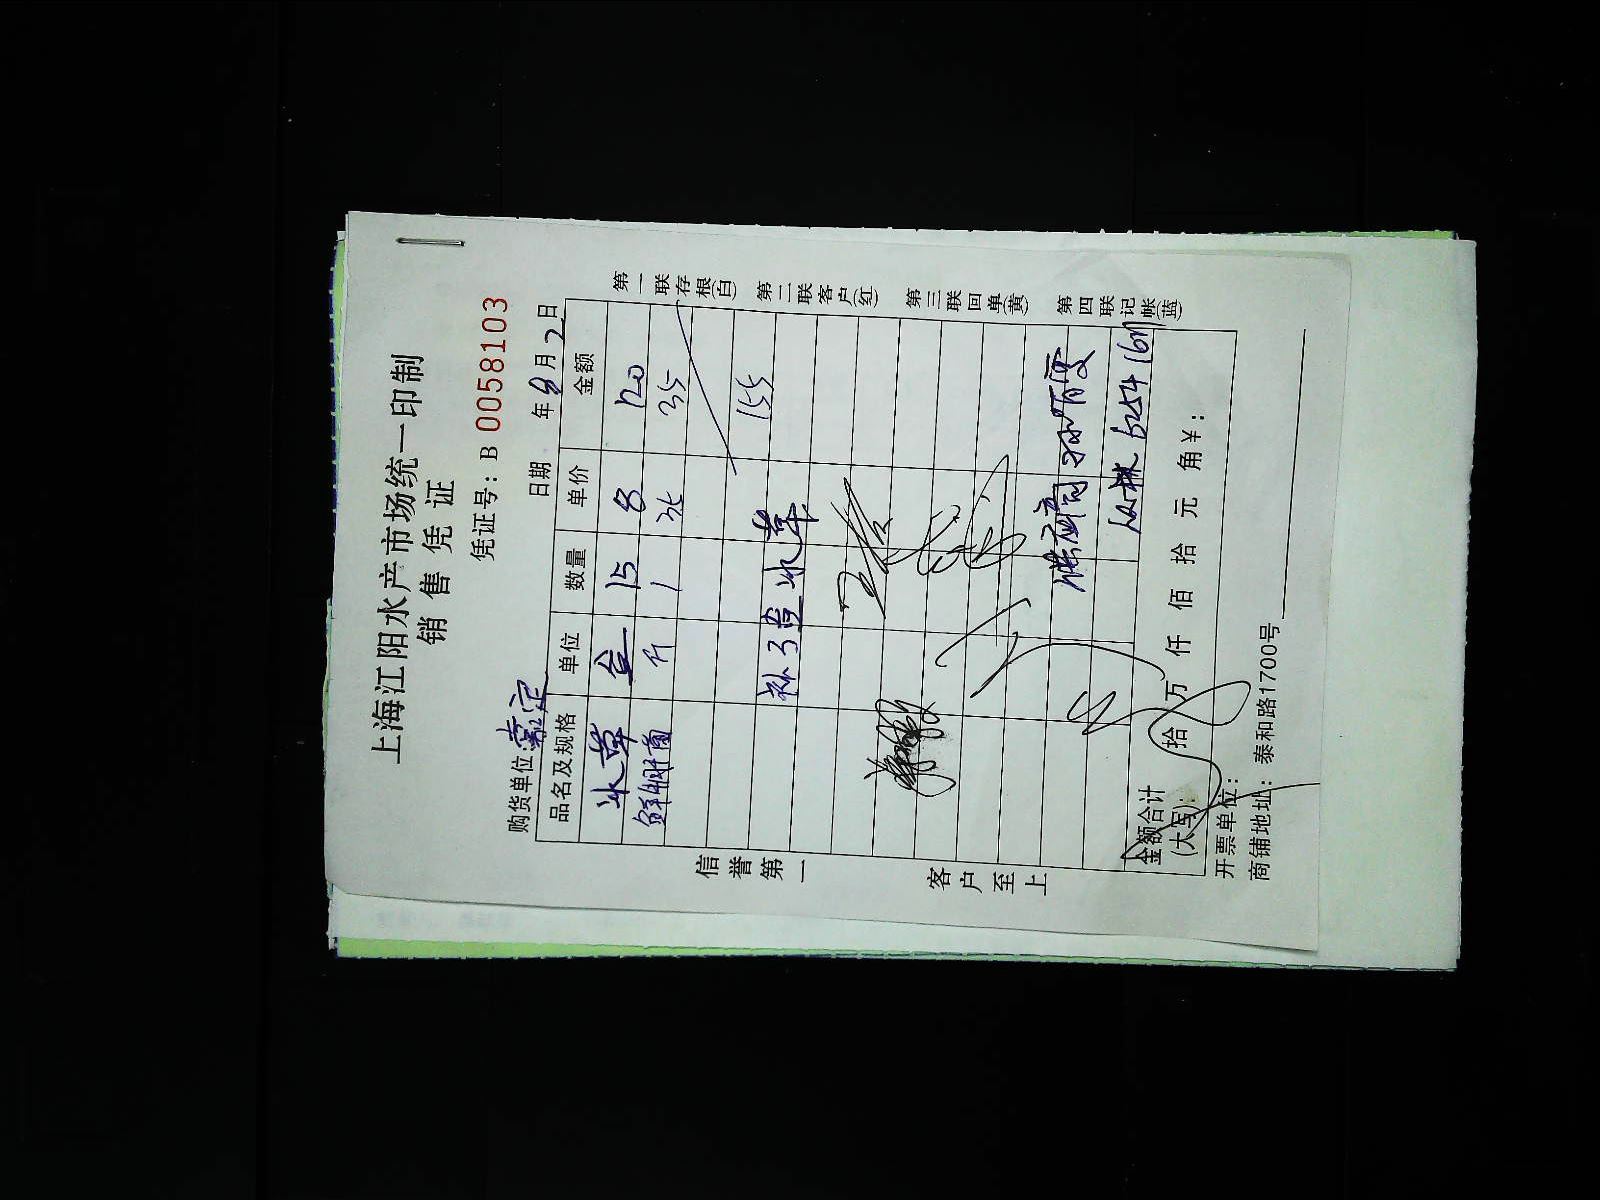 上海江阳水产市场统一印制
销售凭证
凭证号: B 0058103
购货单位 嘉定 日期 年 8 月 2 日
品名及规格 单位 数量 单价 金额
冰草 盒 15 8 120
斤 1 35 35
155
补3盒冰草
供应商
6254
金额合计
(大写): 拾 万 仟 佰 拾 元 角 ¥:
开票单位:
商铺地址: 泰和路1700号
信誉第一
客户至上
第一联存根(白)
第二联客户(红)
第三联回单(黄)
第四联记帐(蓝)